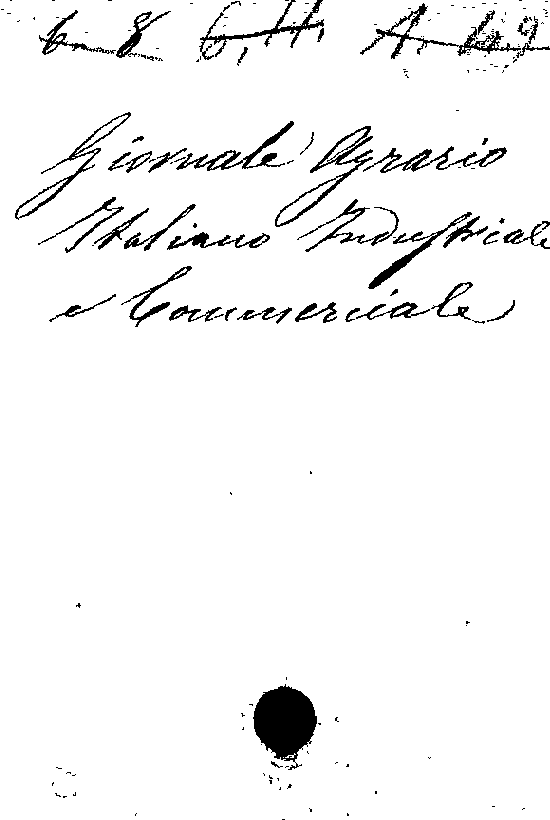 6. 8 6, 11. A. 49
Giornale Agrario
Italiano Industriale
e Commerciale